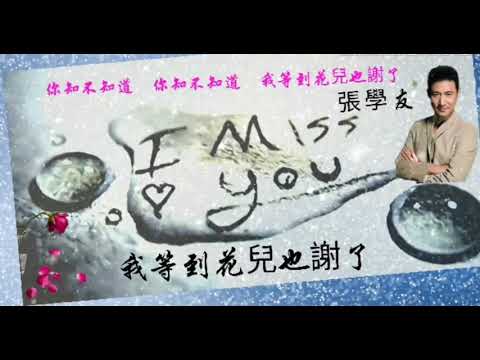 你知不知道 你知不知道 我等到花兒也謝了
張學友
I Miss
you
我等到花兒也謝了